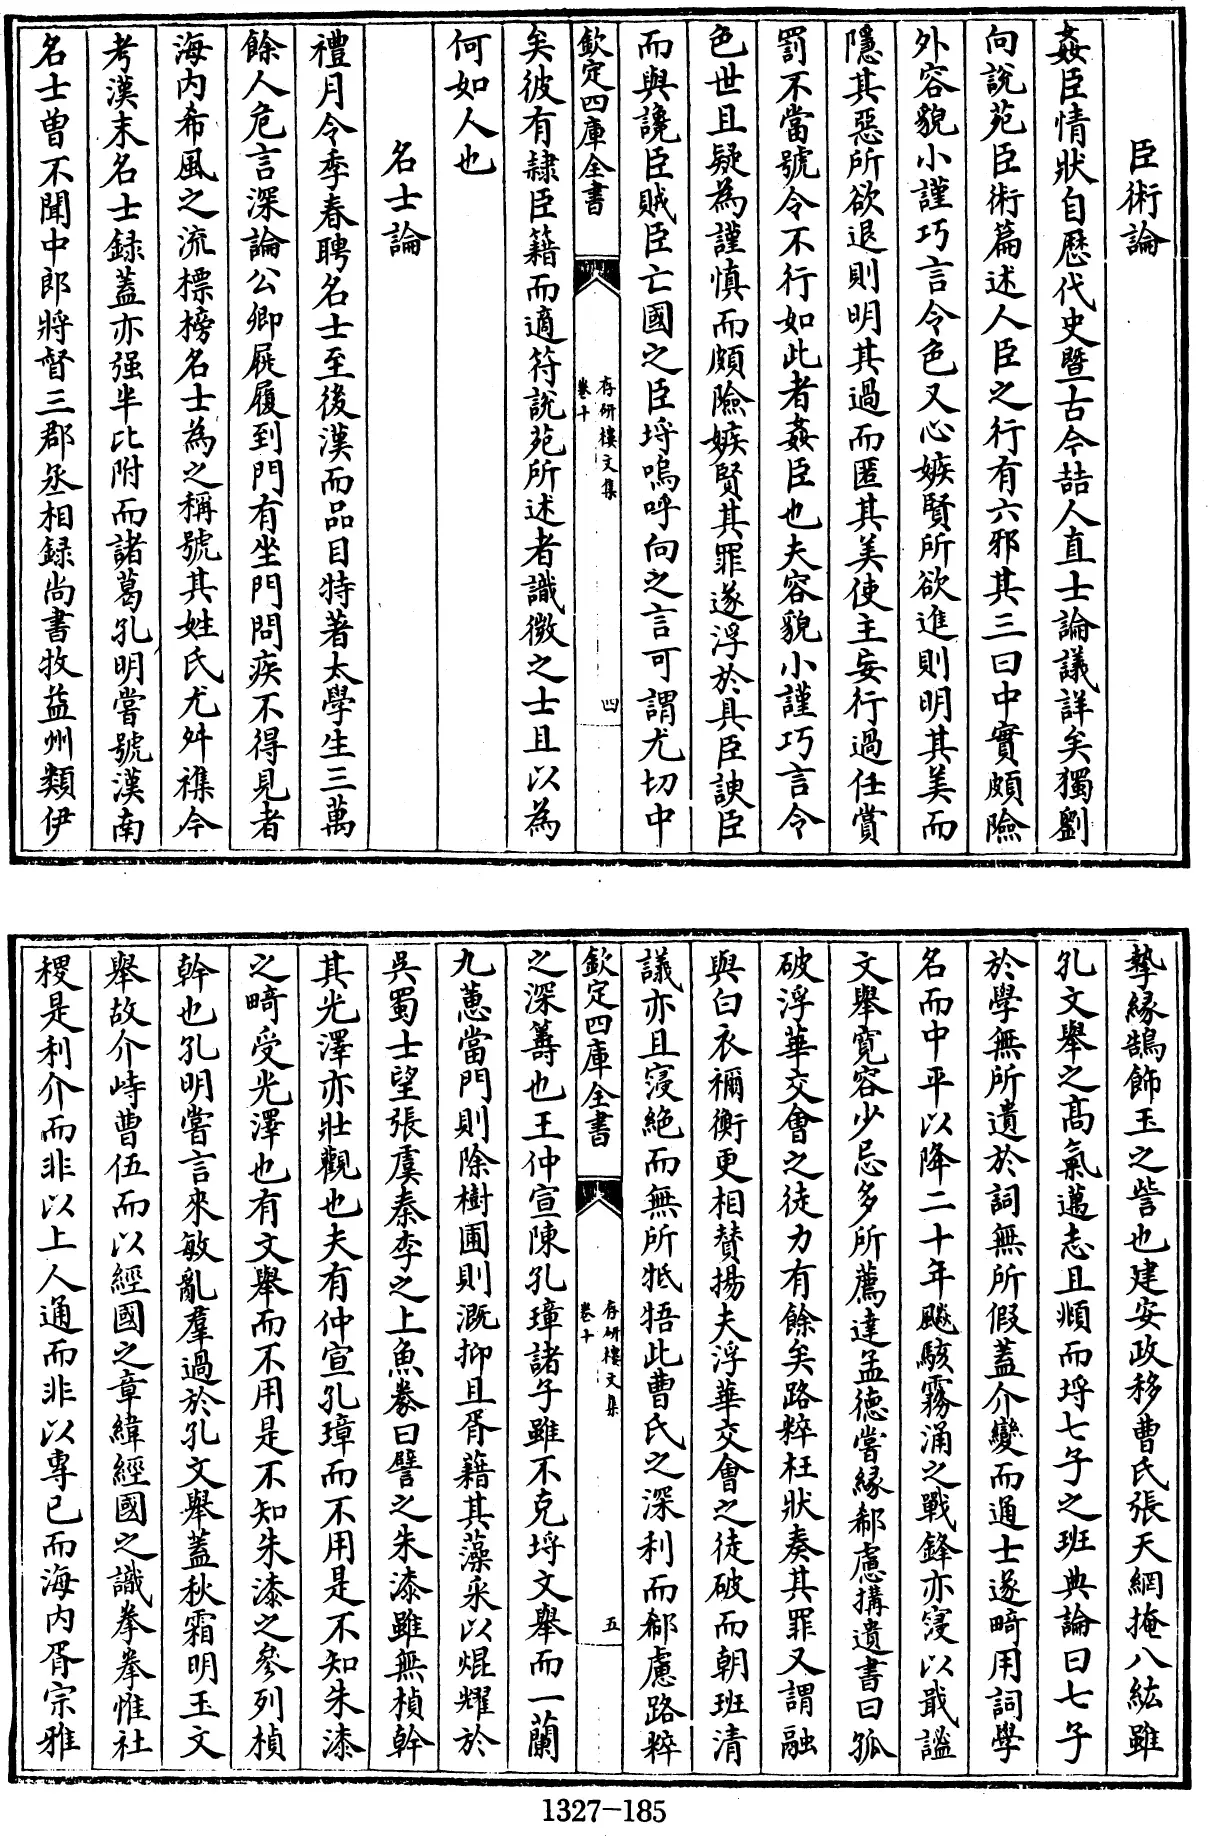 臣術論
姦臣情狀自歴代史暨古今喆人直士論議詳矣獨劉
向說苑臣術篇述人臣之行有六邪其三曰中實頗險
外容貌小謹巧言令色又心嫉賢所欲進則明其美而
隱其惡所欲退則明其過而匿其美使主妄行過任賞
罰不當號令不行如此者姦臣也夫容貌小謹巧言令
色世且疑為謹慎而頗險嫉賢其罪遂浮於具臣諛臣
而與讒臣賊臣亡國之臣埒嗚呼向之言可謂尤切中
欽定四庫全書
存研樓文集
卷十
四
矣彼有隷臣籍而適符說苑所述者識微之士且以為
何如人也
名士論
禮月令季春聘名士至後漢而品目特著太學生三萬
餘人危言深論公卿屣履到門有坐門問疾不得見者
海内希風之流標榜名士為之稱號其姓氏尤舛襍今
考漢末名士録蓋亦强半比附而諸葛孔明嘗號漢南
名士曽不聞中郎將督三郡丞相録尚書牧益州類伊
摯緣鵠飾玉之訾也建安政移曹氏張天網掩八紘雖
孔文舉之髙氣邁志且頫而埒七子之班典論曰七子
於學無所遺於詞無所假蓋介變而通士遂畸用詞學
名而中平以降二十年飈駭霧涌之戰鋒亦寖以戢謐
文舉寛容少忌多所薦達孟德嘗緣郗慮搆遺書曰孤
破浮華交會之徒力有餘矣路粹枉狀奏其罪又謂融
與白衣禰衡更相贊揚夫浮華交會之徒破而朝班清
議亦且寖絶而無所牴牾此曹氏之深利而郗慮路粹
欽定四庫全書
存研樓文集
卷十
五
之深籌也王仲宣陳孔璋諸子雖不克埒文舉而一蘭
九蕙當門則除樹圃則溉抑且胥藉其藻采以焜耀於
吳蜀士望張虞秦李之上魚豢曰譬之朱漆雖無楨幹
其光澤亦壯觀也夫有仲宣孔璋而不用是不知朱漆
之畸受光澤也有文舉而不用是不知朱漆之參列楨
幹也孔明嘗言來敏亂羣過於孔文舉蓋秋霜明玉文
舉故介峙曹伍而以經國之章緯經國之識拳拳惟社
稷是利介而非以上人通而非以專已而海内胥宗雅
1327-185